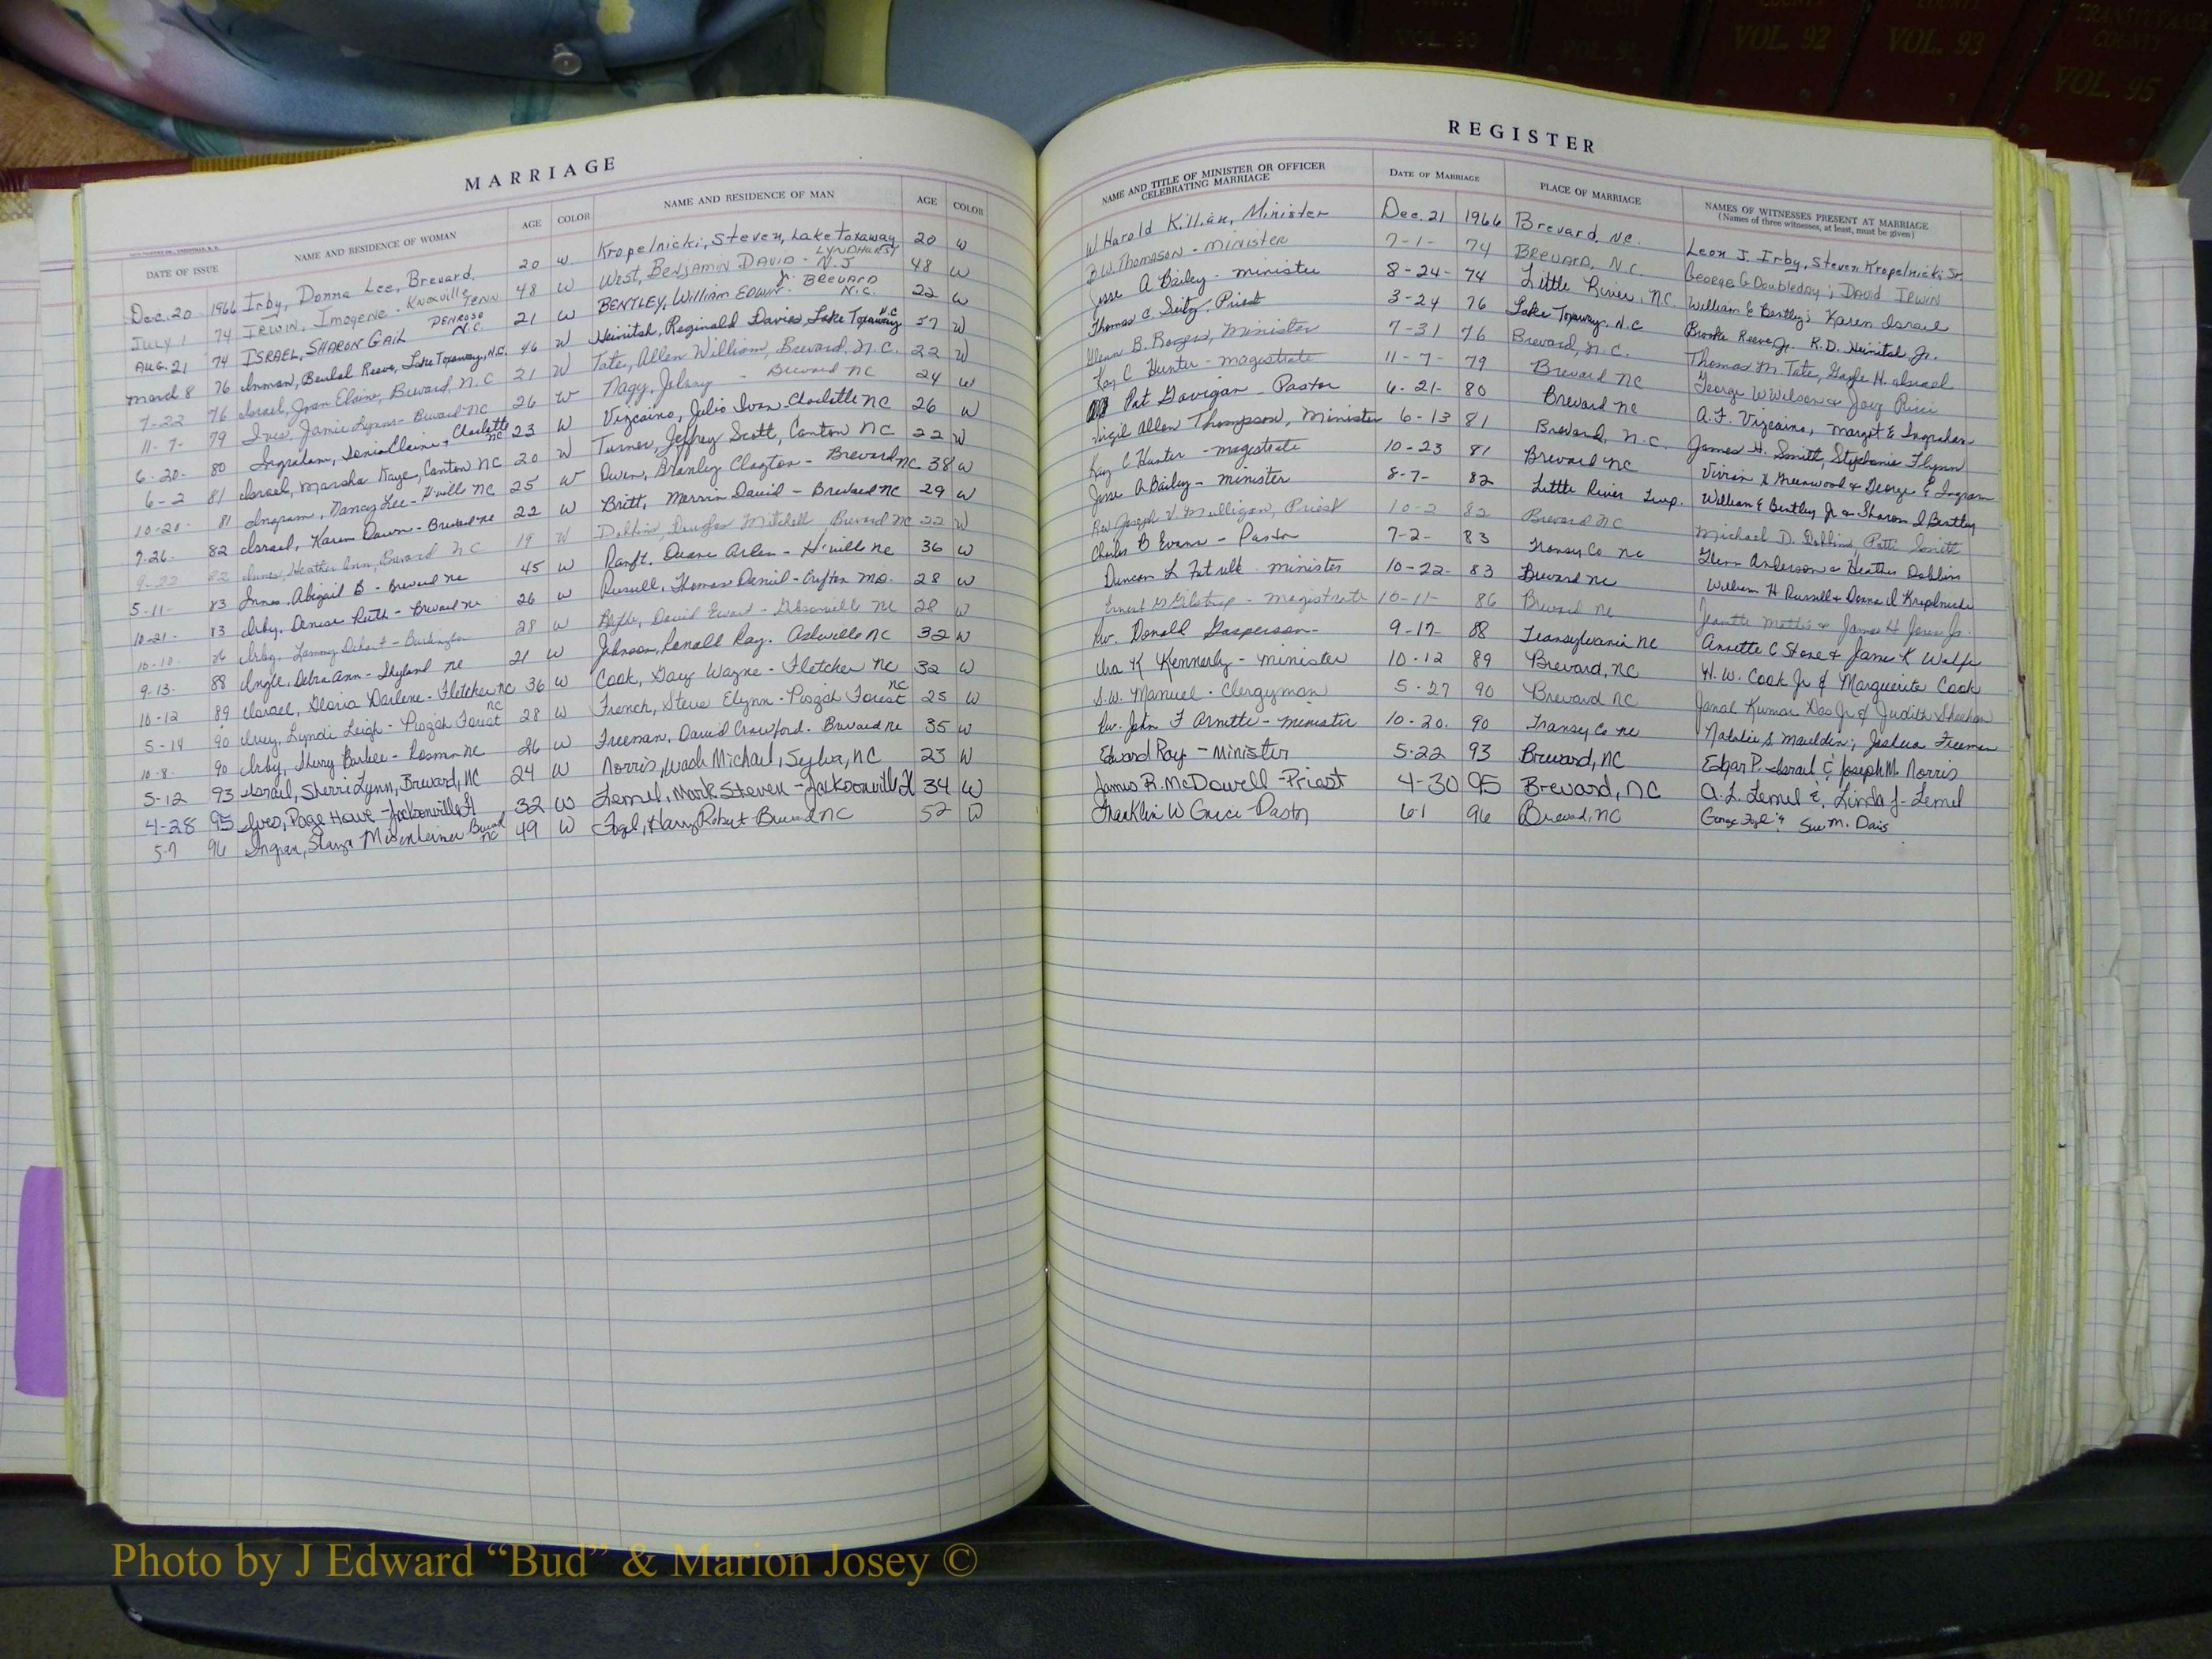 COUNTY COUNTY COUNTY COUNTY TRANSYLVANIA COUNTY
VOL. 90 VOL. 91 VOL. 92 VOL. 93 VOL. 95
MARRIAGE
DATE OF ISSUE NAME AND RESIDENCE OF WOMAN AGE COLOR NAME AND RESIDENCE OF MAN AGE COLOR
Dec. 20 1966 Irby, Donna Lee, Brevard. 20 W Kropelnicki, Steven, Lake Toxaway 20 W
JULY 1 74 IRWIN, Imogene - Knoxville TENN 48 W West, BENJAMIN DAVID - LYNDHURST N.J 48 W
AUG. 21 74 ISRAEL, SHARON GAIL PENROSE N.C. 21 W BENTLEY, William EDWIN Jr. BREVARD N.C. 22 W
March 8 76 Inman, Beulah Reeve, Lake Toxaway, N.C. 46 W Heinitsh, Reginald Davis, Lake Toxaway N.C 57 W
7-22 76 Israel, Joan Elaine, Brevard, N.C 21 W Tate, Allen William, Brevard, N.C. 22 W
11-7- 79 Ives, Jamie Lynn - Brevard NC 26 W Nagy, - Brevard NC 24 W
6-20- 80 Ingraham, Charlotte NC 23 W Vizcaino, Julio Ivan - Charlotte NC 26 W
6-2 81 Israel, Marsha Kaye, Canton NC 20 W Turner, Jeffrey Scott, Canton NC 22 W
10-20- 81 Ingram, Nancy Lee - H'ville NC 25 W Owen, Clayton - Brevard NC 38 W
7-26- 82 Israel, Karen Dawn - Brevard NC 22 W Britt, Merrin David - Brevard NC 29 W
9-22 82 Innes, Heather Ann, Brevard NC 19 W Dobbins, Douglas Mitchell Brevard NC 22 W
5-11- 83 Innes, Abigail B - Brevard NC 45 W Ranft, Duane Arlen - H'ville NC 36 W
10-21- 83 Irby, Denise Ruth - Brevard NC 26 W Russell, Thomas Daniel - Crofton Md. 28 W
10-10 86 Irby, Tammy - Burlington 28 W David - Gibsonville NC 28 W
9-13- 88 Ingle, Debra Ann - Skyland NC 21 W Johnson, Ronald Ray. Asheville NC 32 W
10-12 89 Israel, Gloria Darlene - Fletcher NC 36 W Cook, Gary Wayne - Fletcher NC 32 W
5-14 90 Ivey, Lyndi Leigh - Pisgah Forest NC 28 W French, Steve Elynn - Pisgah Forest NC 25 W
10-8- 90 Irby, Sherry Barbee - Rosman NC 26 W Freeman, David Crawford. Brevard NC 35 W
5-12 93 Israel, Sherri Lynn, Brevard, NC 24 W Norris, Wade Michael, Sylva, NC 23 W
4-28 95 Ives, Page Howe - Jacksonville Fl 32 W Lemel, Mark Steven - Jacksonville Fl 34 W
5-7 96 Ingram, Misenheimer Brevard NC 49 W Fogl, Harry Robert - Brevard NC 52 W
REGISTER
NAME AND TITLE OF MINISTER OR OFFICER CELEBRATING MARRIAGE DATE OF MARRIAGE PLACE OF MARRIAGE NAMES OF WITNESSES PRESENT AT MARRIAGE
(Names of three witnesses, at least, must be given)
W Harold Killian, Minister Dec. 21 1966 Brevard, NC. Leon J. Irby, Steven Kropelnicki, Sr.
B.W. Thomason - MINISTER 7-1- 74 BREVARD, N.C. George G Doubleday; DAVID IRWIN
Jesse A Bailey - minister 8-24- 74 Little River, NC William E Bentley; Karen Israel
Thomas C. Seitz, Priest 3-24 76 Lake Toxaway, N.C Brooke Reeve Jr. R.D. Heinitsh, Jr.
Glenn B. Rogers, Minister 7-31 76 Brevard, N.C. Thomas M. Tate, Gayle H. Israel
Kay C Hunter - magistrate 11-7- 79 Brevard NC George W Wilson & Joey Ricci
Pat Gavigan - Pastor 6-21- 80 Brevard NC A.F. Vizcaino, Margit E Ingraham
Virgil Allen Thompson, Minister 6-13 81 Brevard, N.C. James H. Smith, Stephanie Flynn
Kay C Hunter - magistrate 10-23 81 Brevard NC Vivian K Greenwood & George E Ingram
Jesse A Bailey - minister 8-7- 82 Little River Twp. William E Bentley Jr & Sharon I Bentley
Rev Joseph V. Mulligan, Priest 10-2 82 Brevard NC Michael D. Dobbins, Patti Smith
Charles B Evans - Pastor 7-2- 83 Transy Co NC Glenn Anderson & Heather Dobbins
Duncan L minister 10-22- 83 Brevard NC William H Russell & Donna I Kropelnicki
Ernest G Gilstrap - magistrate 10-11- 86 Brevard NC Jeanette Mathis & James H Jones Jr.
Rev. Donald Gasperson- 9-17- 88 Transylvania NC Annette C Stone & James K Wolfe
Ura K Kennerly - minister 10-12 89 Brevard, NC H.W. Cook Jr & Marguerite Cook
S.W. Manuel - Clergyman 5-27 90 Brevard NC Janal Kumar Das Jr & Judith Sheehan
Rev. John F Arnette - minister 10-20. 90 Transy Co NC Natalie S. Mauldin; Joshua Freeman
Edward Ray - Minister 5-22 93 Brevard, NC Edgar P. Israel & Joseph M. Norris
James R. McDowell - Priest 4-30 95 Brevard, NC A.L. Lemel &, Linda J. Lemel
Franklin W Grice - Pastor 6-1 96 Brevard, NC George Fogl & Sue M. Davis
Photo by J Edward “Bud” & Marion Josey ©